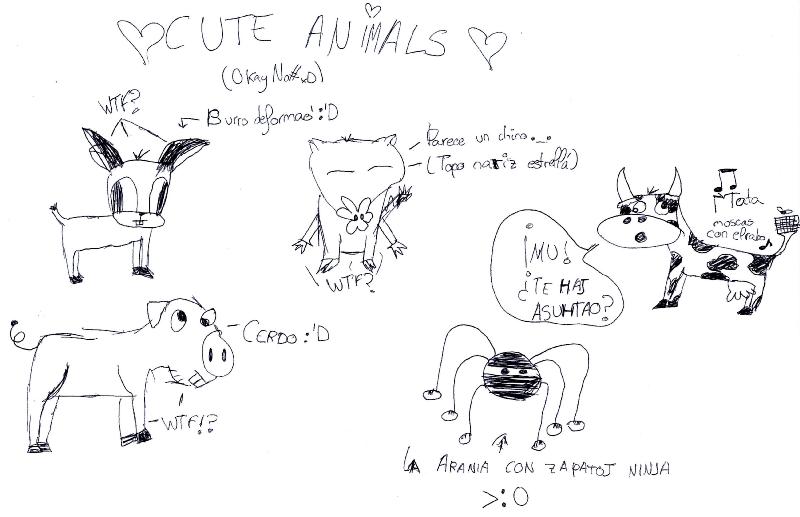 CUTE ANIMALS
(Okay No xD)
WTF?
Burro deformao :'D
Parece un chino ._.
(Topo nariz estrellá)
WTF?
¡MU!
¿TE HAS
ASUHTAO?
moscas
con el rabo
CERDO :'D
WTF!?
LA ARANIA CON ZAPATOS NINJA
>:O